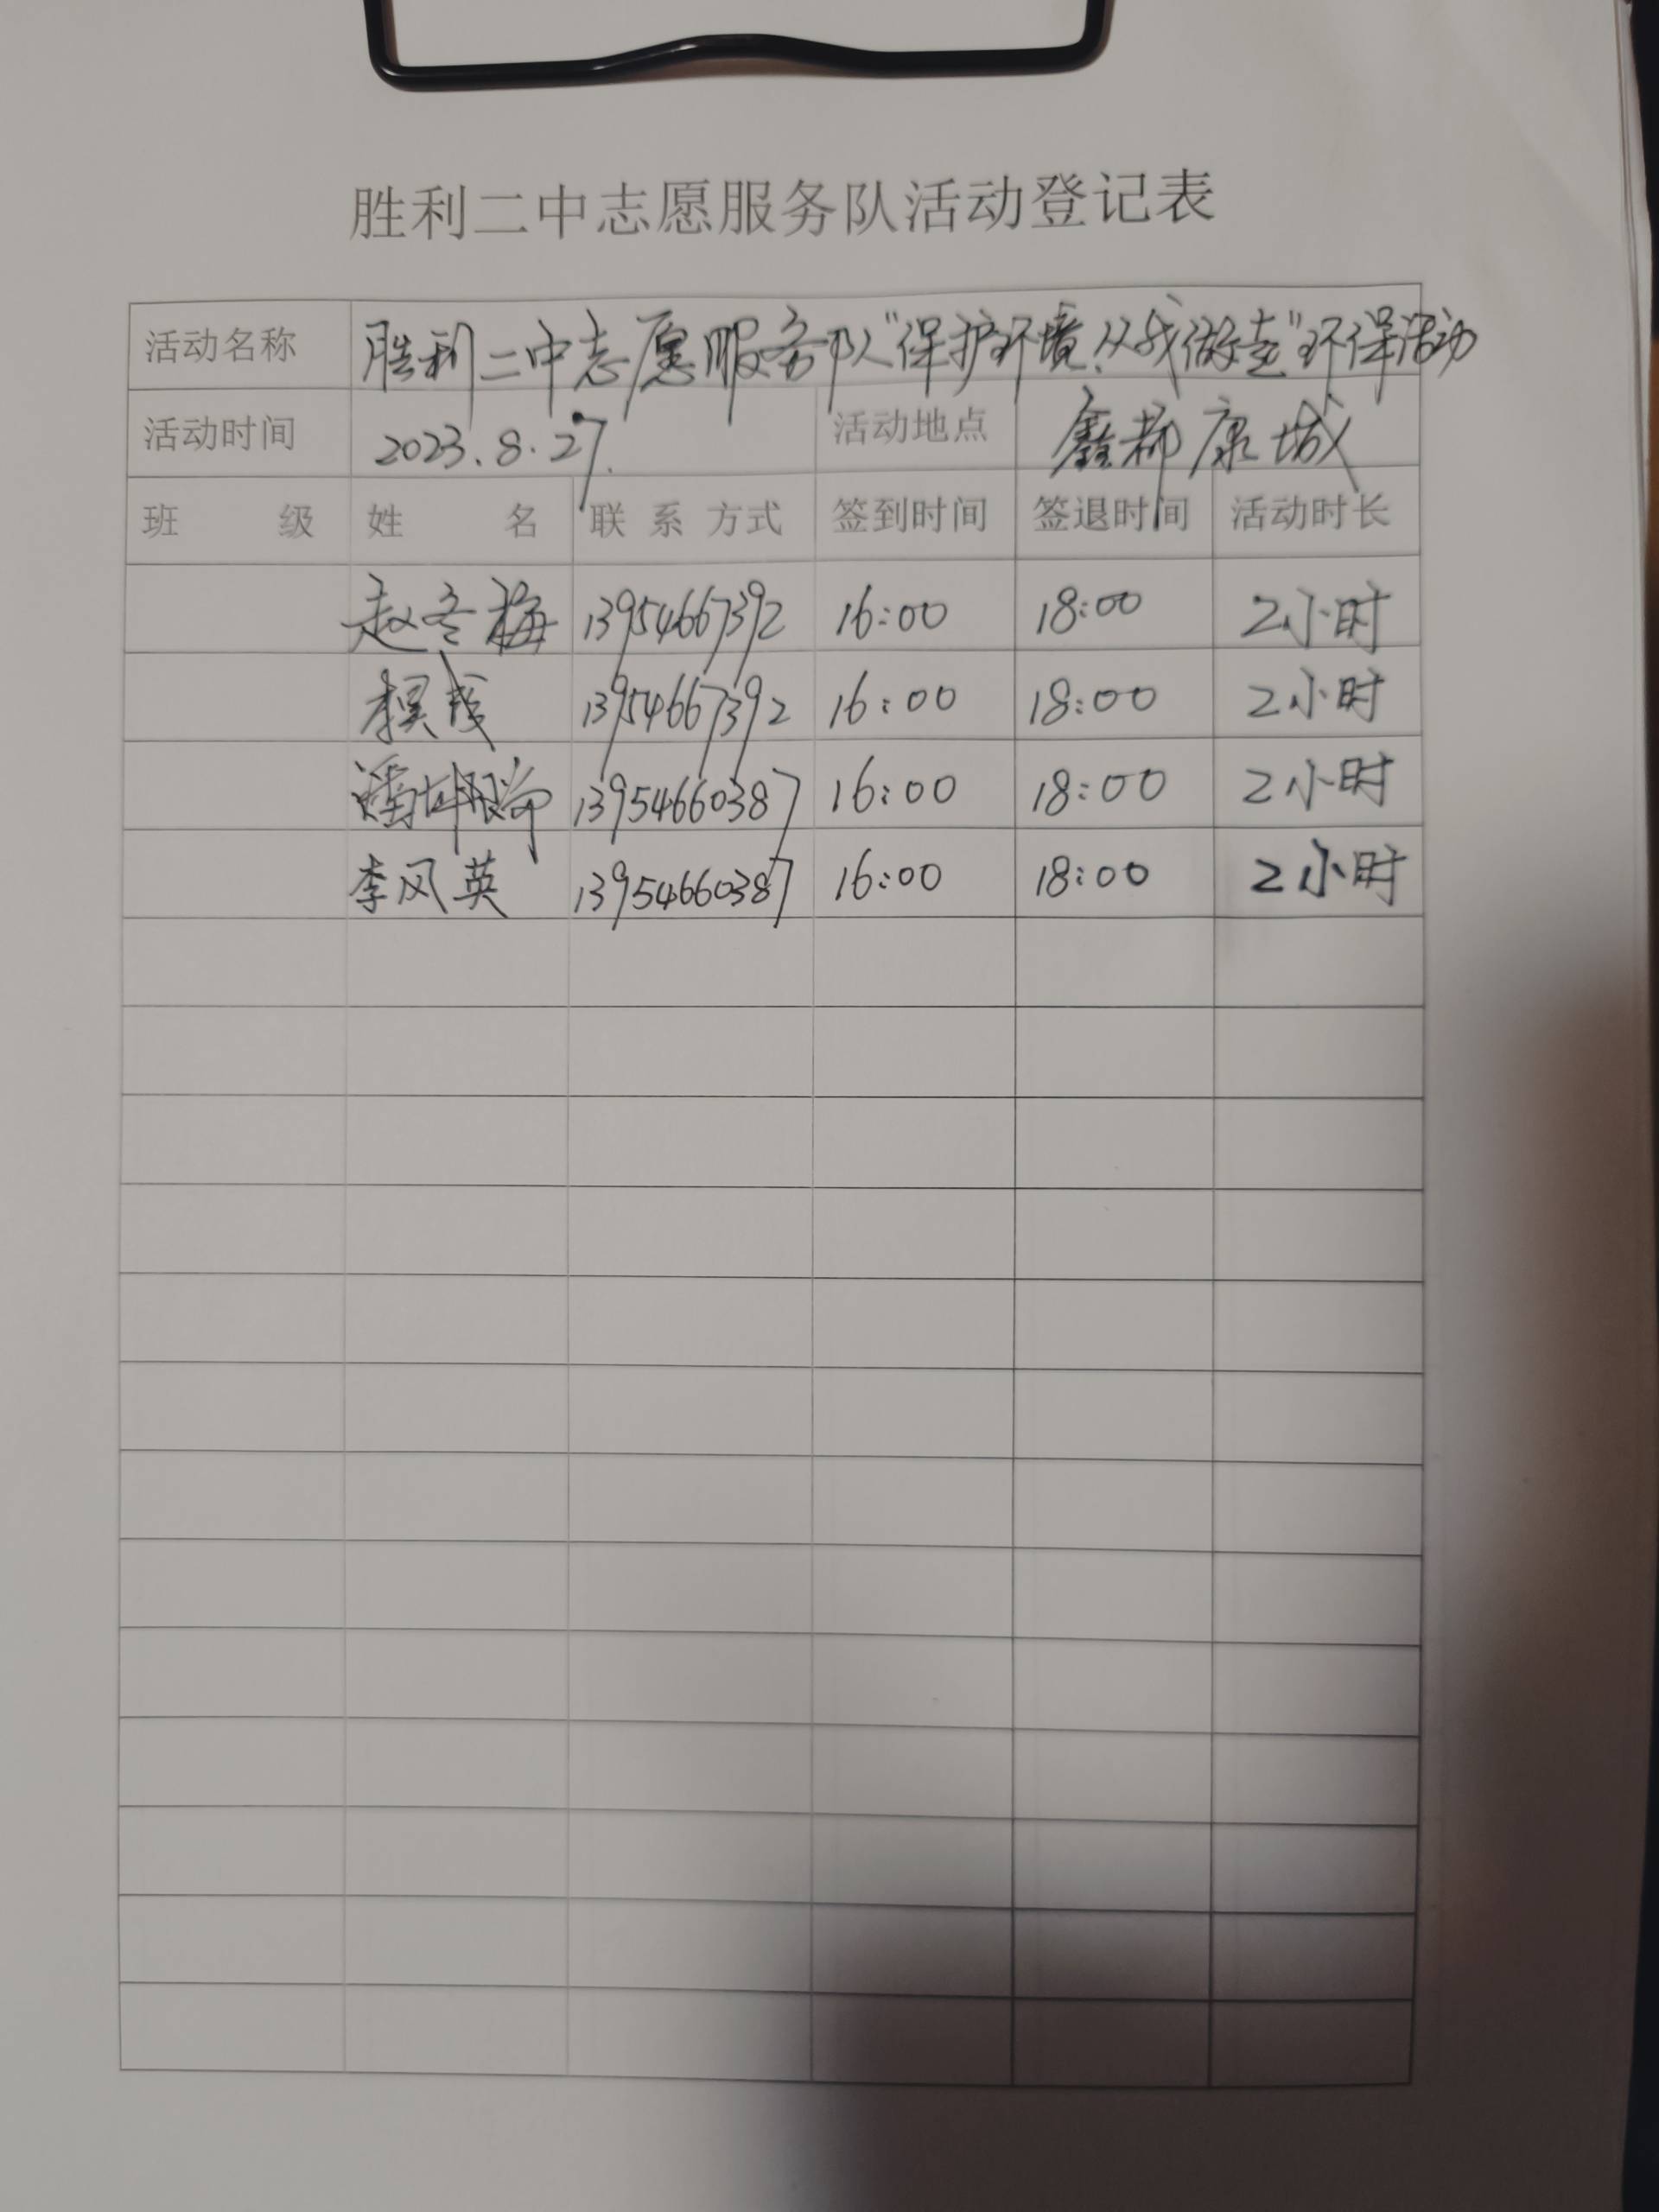 胜利二中志愿服务队活动登记表
活动名称 胜利二中志愿服务队"保护环境、从我做起"环保活动
活动时间 2023.8.27. 活动地点 鑫都康城
班 级 姓 名 联系方式 签到时间 签退时间 活动时长
赵冬梅 13954667392 16:00 18:00 2小时
13954667392 16:00 18:00 2小时
潘坤 13954660387 16:00 18:00 2小时
李风英 13954660387 16:00 18:00 2小时